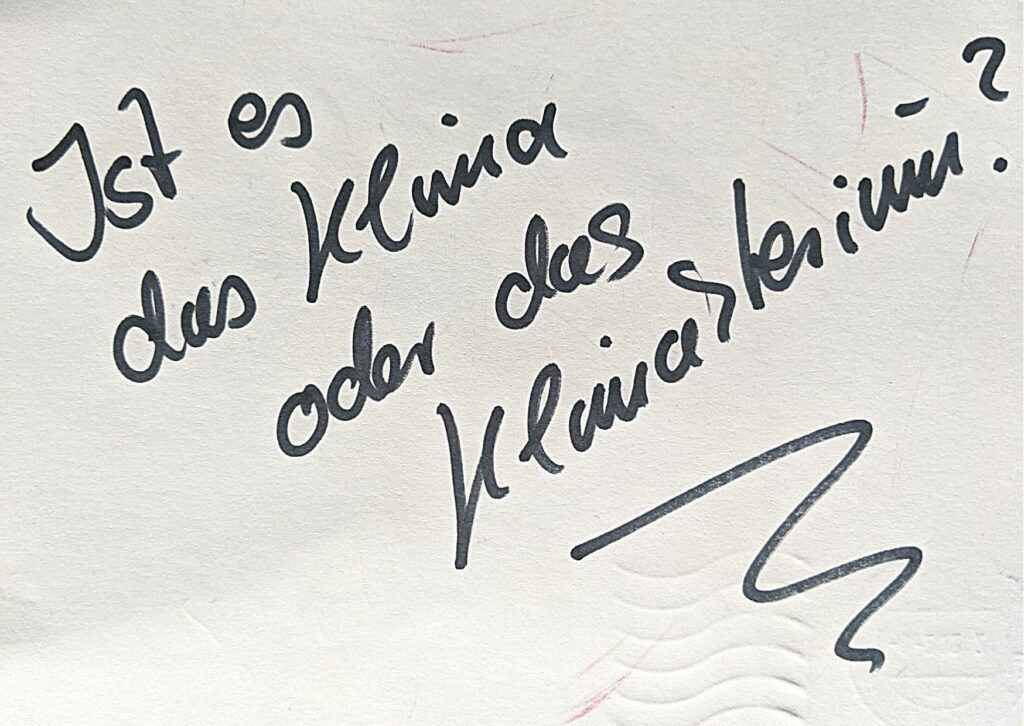 Ist es
das Klima
oder das
Klimasterium?